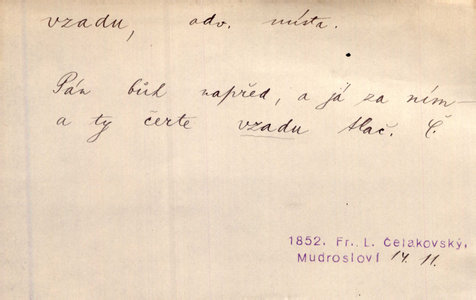 vzadu, adv. místa.
Pán bůh napřed, a já za ním —
a ty čerte vzadu tlač. Č.
1852. Fr. L. Čelakovský,
Mudrosloví 14. 11.